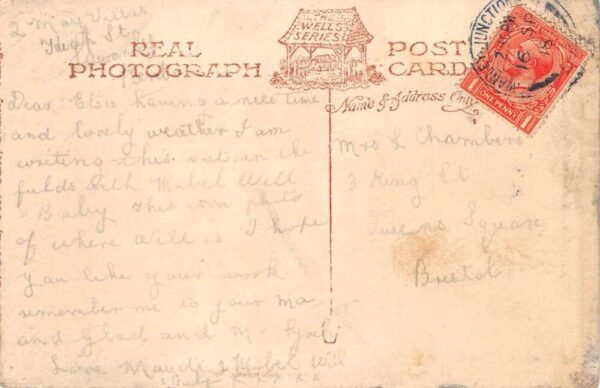 2 May Villas
High St
REAL
PHOTOGRAPH
THE
WELLS
SERIES
POST
CARD
Name & Address Only
JUNCTION
16 SP
ONE PENNY
Dear Elsie having a nice time
and lovely weather I am
writing this sat in the
fields with Mabel Will
& Baby This is a photo
of where Will is I hope
you like your work
remember me to your Ma
and Glad and Mr
Love Maudi & Mabel Will
Mrs L Chambers
3 King St
Queens Square
Bristol